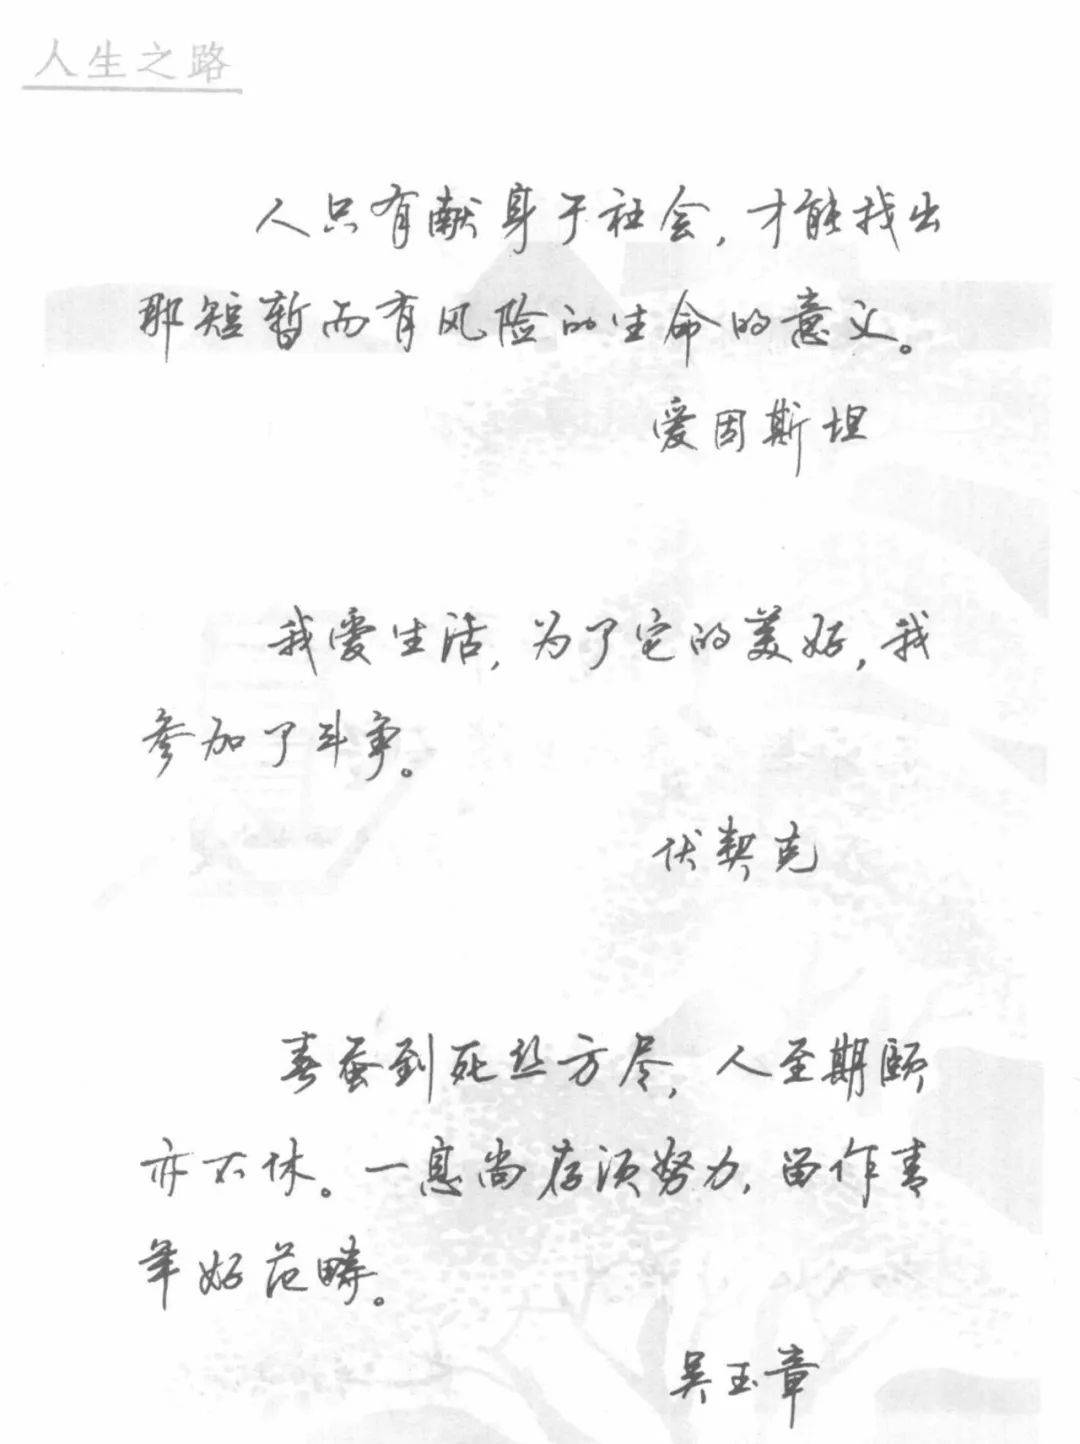 人生之路
人只有献身于社会,才能找出
那短暂而有风险的生命的意义。
爱因斯坦
我爱生活,为了它的美好,我
参加了斗争。
伏契克
春蚕到死丝方尽,人至期颐
亦不休。一息尚存须努力,留作青
年好范畴。
吴玉章